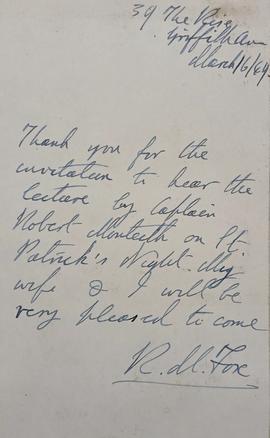 39 The Rise
Griffith Av.
March 16/49.
Thank you for the
invitation to hear the
lecture by Captain
Robert Monteith on St
Patrick's Night. My
wife & I will be
very pleased to come
R. M. Fox